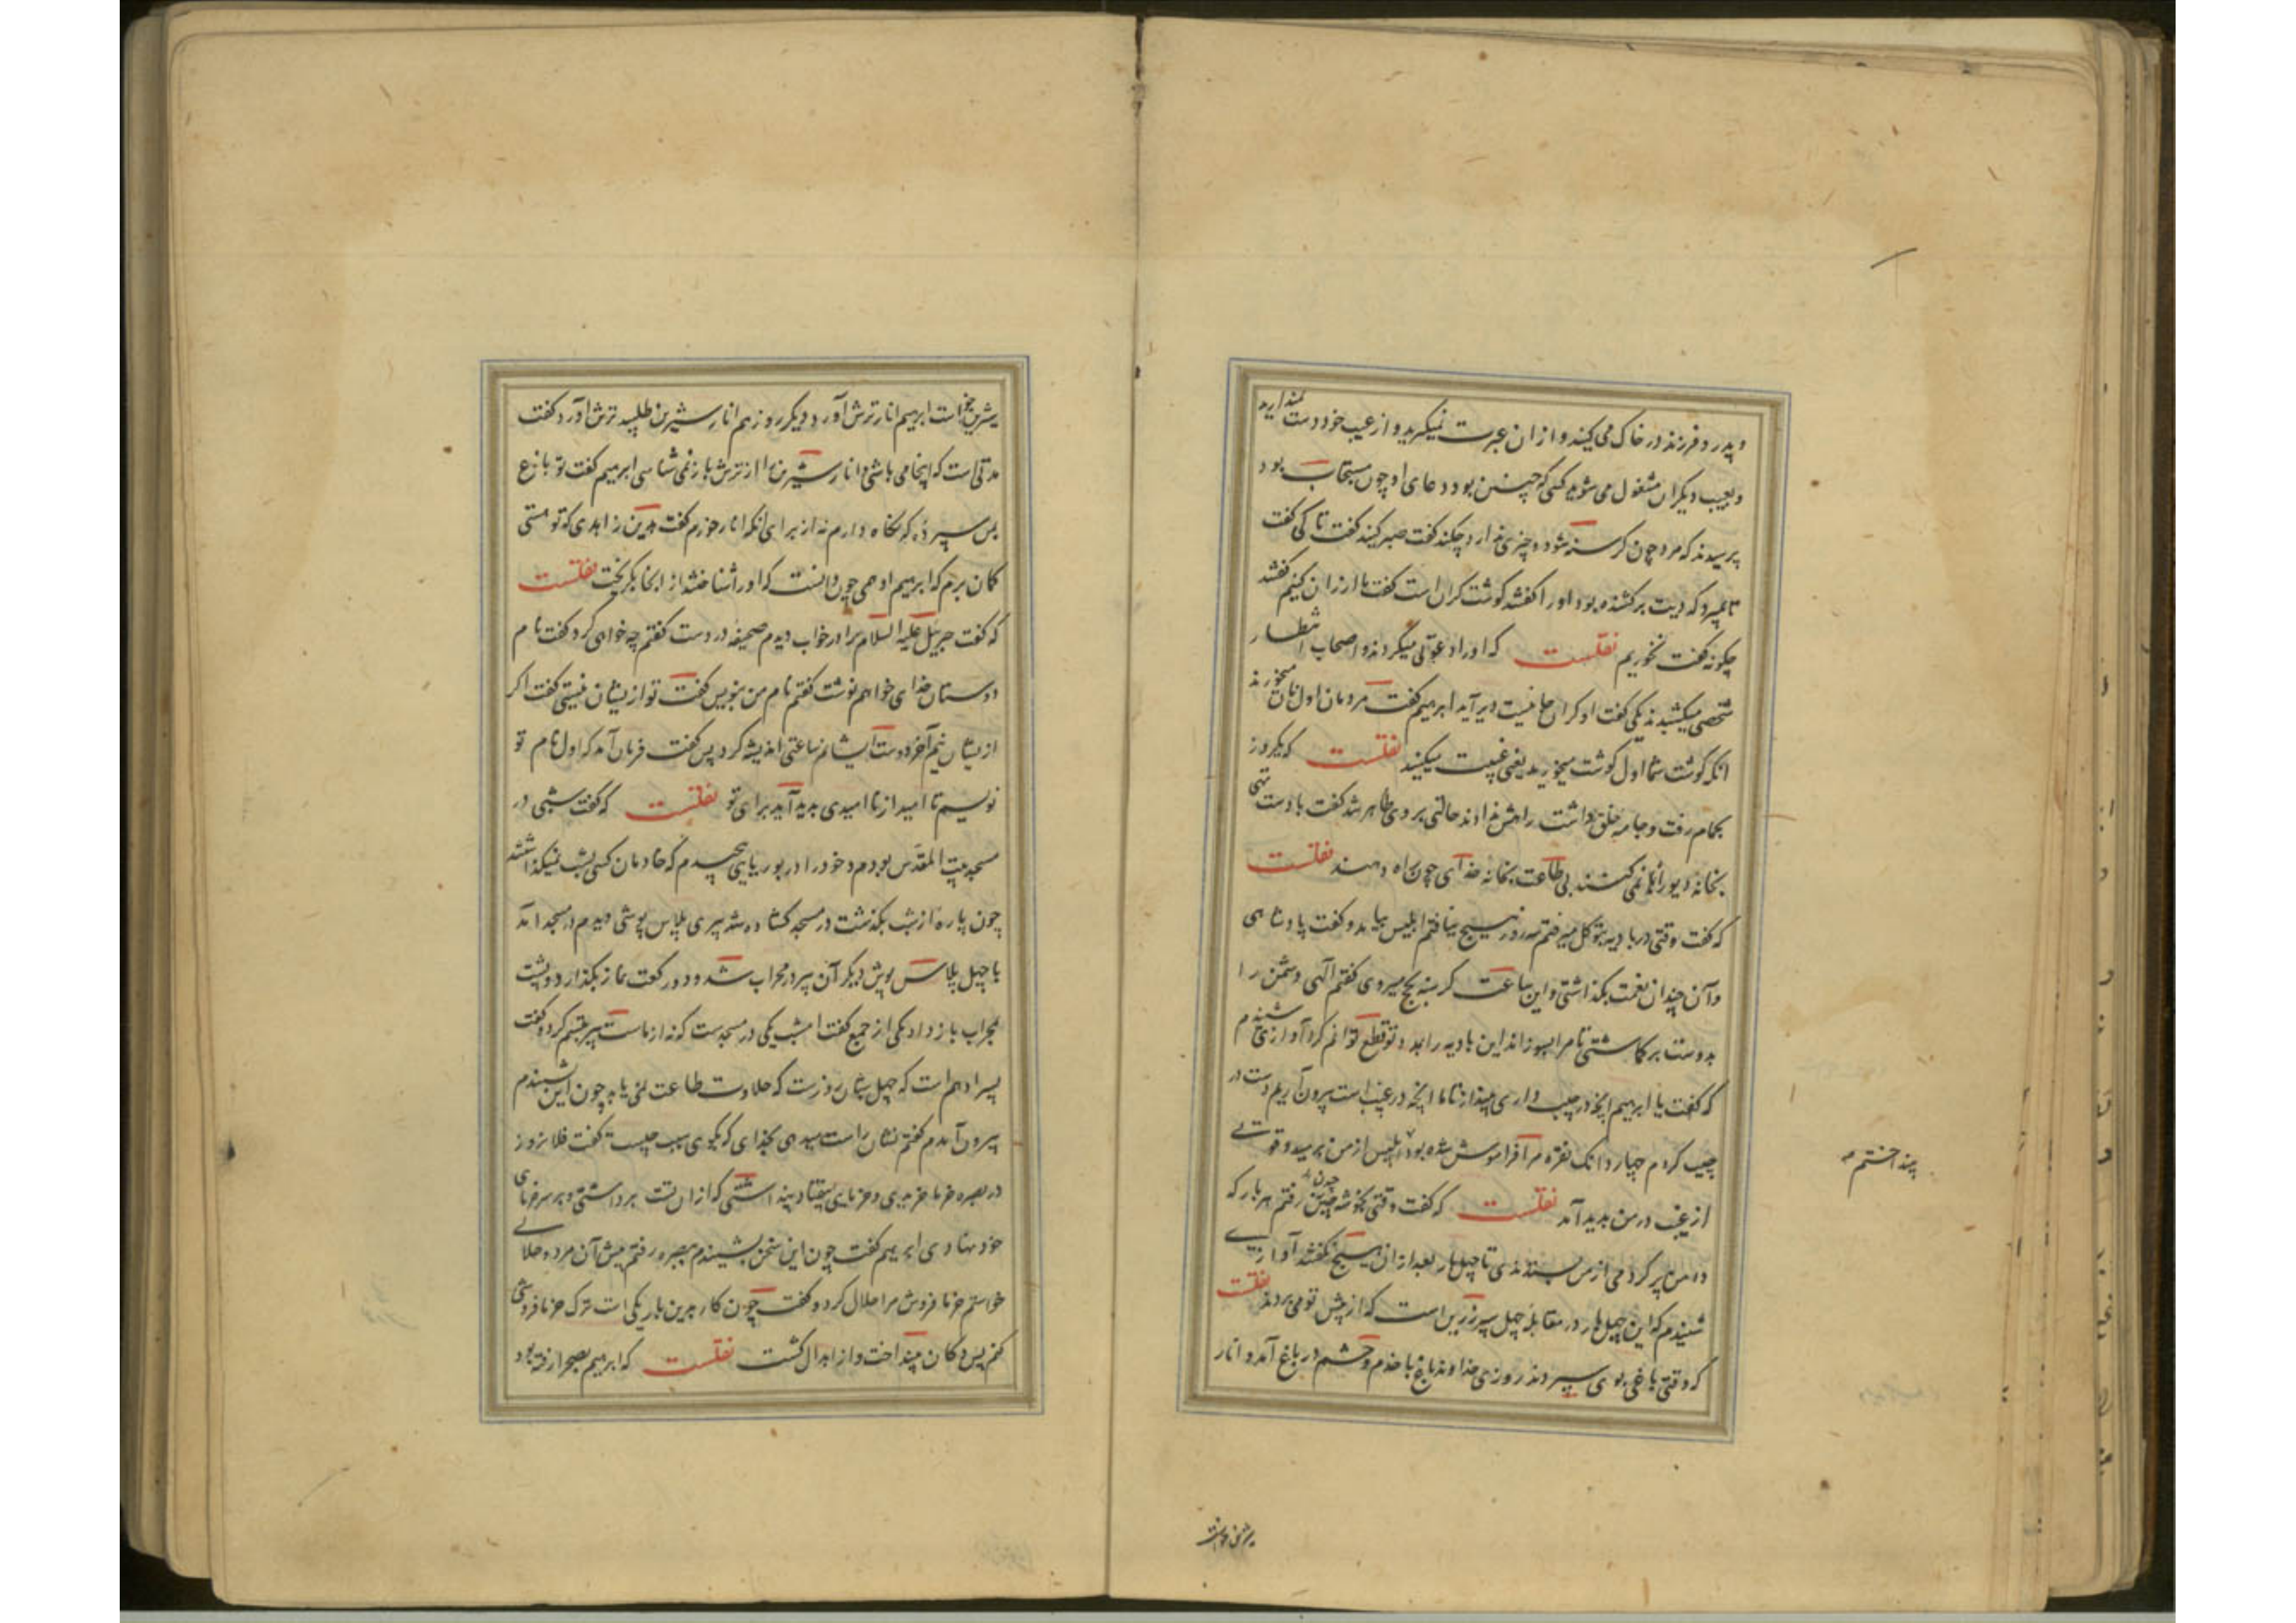 و پدر و فرزند در خاک می کنید و از ان عبرت نمیگیرید و از عیب خود دست نمیدارید
و بعیب دیگران مشغول می شوید کسی که چنین بود دعای او چون مستجاب بود
پرسیدند که مرد چون کرسنه شود و چیزی ندارد چکند کفت صبر کند کفت تا کی کفت
تا بمیرد که دیت برکشنده بود او را کفتند کوشت کران است کفت تا ارزان کنیم کفتند
چکونه کفت نخوریم نقلست که او را دعوتی میکردند و اصحاب انتظار
شخصی میکشیدند یکی کفت او کران جانیست دیر آید ابرهیم کفت مردمان اول نان میخورند
انکه کوشت شما اول کوشت میخورید یعنی غیبت میکنید نقلست که یکروز
بحمام رفت و جامه خلق داشت راهش ندادند حالتی بر وی ظاهر شد کفت با دست تهی
بخانه دیو راه نمی کنند بی طاعت بخانه خدای چون راه دهند نقلست
که کفت وقتی در بادیه بتوکل میرفتم سه روز هیچ نیافتم ابلیس بیامد و کفت پادشاهی
و آن چندان نعمت بکذاشتی و این ساعت کرسنه بحج میروی کفتم الهی دشمن را
بدوست برکماشتی تا مرا بسوزاند این بادیه را بمدد تو قطع توانم کرد آوازی شنیدم
که کفت یا ابرهیم انچه در جیب داری بینداز تا ما انچه در غیب است بیرون آریم دست در
جیب کردم چهار دانک نقره مرا فراموش شده بود ابلیس از من برمید و قوتی
از غیب در من پدید آمد نقلست که کفت وقتی بخوشه چیدن رفتم هر بار که
دامن پر کردمی از من بستدندی تا چهل بار بعد از ان هیچ نکفتند آوازی
شنیدم که این چهل بار در مقابله چهل سپر زرین است که از پیش تو می بردند نقلست
که وقتی باغی بوی سپردند روزی خداوند باغ با خدم و حشم در باغ آمد و انار
بینداختم
شیرین خواست
شیرین خواست ابرهیم انار ترش آورد دیکر روز هم انار شیرین طلبید ترش آورد کفت
مدتی است که اینجا می باشی و انار شیرین را از ترش باز نمی شناسی ابرهیم کفت تو باغ
بمن سپرده که نکاه دارم نه از برای انکه انار خورم کفت بدین زاهدی که تو هستی
کمان برم که ابرهیم ادهمی چون دانست که او را شناختند از انجا بکریخت نقلست
که کفت جبریل علیه السلام را در خواب دیدم صحیفه در دست کفتم چه خواهی کرد کفت نام
دوستان خدای خواهم نوشت کفتم نام من بنویس کفت تو از یشان نیستی کفت اکر
از یشان نیم آخر دوست ایشانم ساعتی اندیشه کرد پس کفت فرمان آمد که اول نام تو
نویسم تا امید از نا امیدی پدید آید برای تو نقلست که کفت شبی در
مسجد بیت المقدس بودم و خود را در بوریایی پیچیدم که خادمان کسی بشب نمیکذاشتند
چون پاره از شب بکذشت در مسجد کشاده شد پیری پلاس پوشی دیدم در مسجد آمد
با چهل پلاس پوش دیکر آن پیر در محراب شد و دو رکعت نماز بکذارد و پشت
بمحراب باز داد یکی از جمع کفت امشب یکی در مسجدست که نه از ماست پیر تبسم کرد و کفت
پسر ادهم است که چهل شبان روزست که حلاوت طاعت نمی یابد چون این شنیدم
بیرون آمدم کفتم نشان راست میدهی بخدای که بکوی سبب چیست کفت فلان روز
در بصره خرما خریدی و خرمایی بیفتاد پنداشتی که از ان تست برداشتی و بر سر خرمای
خود نهادی ابرهیم کفت چون این سخن بشنیدم ببصره رفتم پیش آن مرد و حلالی
خواستم خرما فروش مرا حلال کرد و کفت چون کار بدین باریکی است ترک خرما فروشی
کنم پس دکان بینداخت و از ابدال کشت نقلست که ابرهیم بصحرا رفته بود